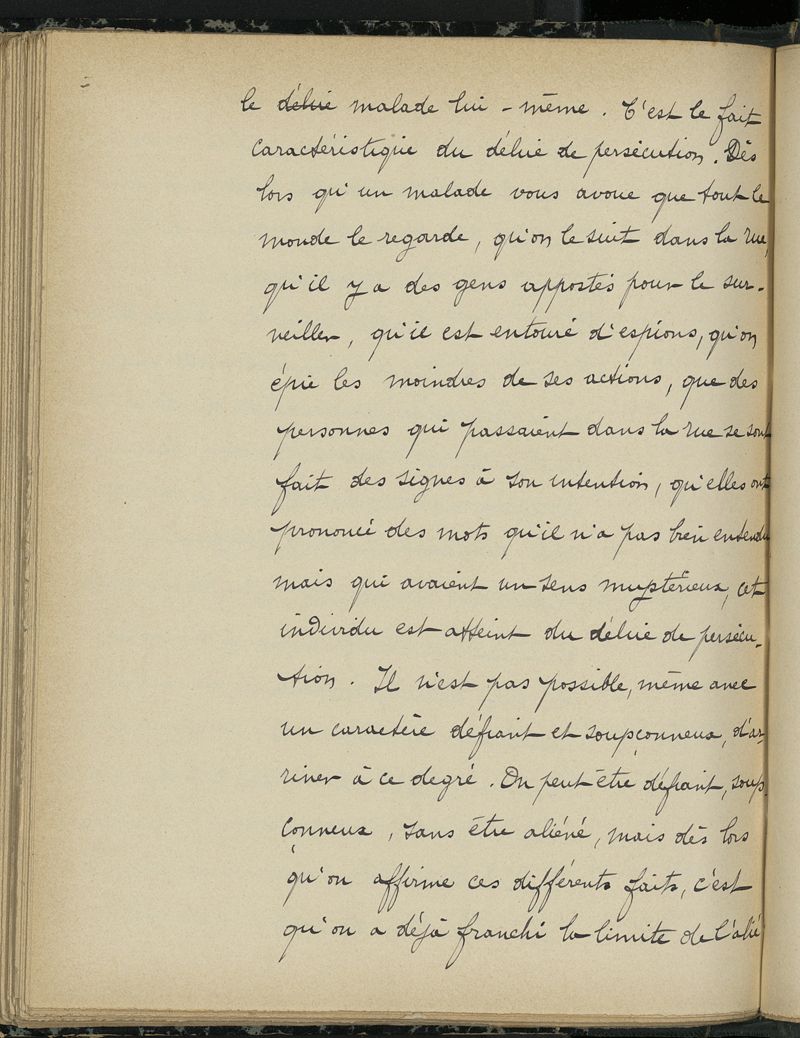 le délire malade lui-même. C'est le fait
caractéristique du délire de persécution. Dès
lors qu'un malade vous avoue que tout le
monde le regarde, qu'on le suit dans la rue,
qu'il y a des gens appostés pour le sur-
veiller, qu'il est entouré d'espions, qu'on
épie les moindres de ses actions, que des
personnes qui passaient dans la rue se sont
fait des signes à son intention, qu'elles ont
prononcé des mots qu'il n'a pas bien entendu
mais qui avaient un sens mystérieux, cet
individu est atteint du délire de persécu-
tion. Il n'est pas possible, même avec
un caractère défiant et soupçonneux, d'ar-
river à ce degré. On peut être défiant, soup-
çonneux, sans être aliéné, mais dès lors
qu'on affirme ces différents faits, c'est
qu'on a déjà franchi la limite de l'alié